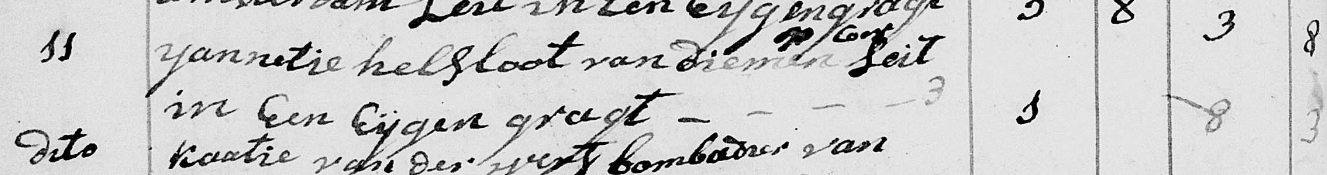 amsterdam Leit in Een Eygengragt 3 8 3
11 yannetie helsloot van diemen Leit 8
in Een Eijgen gragt - - - - 3 1 8 3
dito kaatie van der werf bombadier van